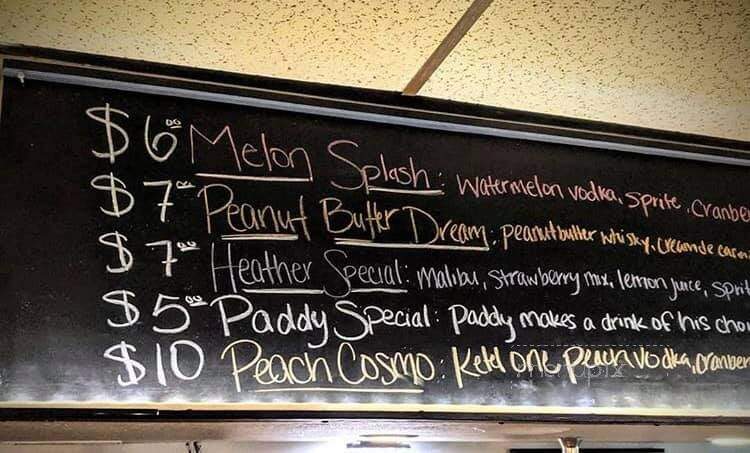 $6.00 Melon Splash: Watermelon vodka, Sprite, Cranbe
$7.00 Peanut Butter Dream: peanutbutter whisky, creamde
$7.00 Heather Special: malibu, strawberry mix, lemon juice, sprit
$5.00 Paddy Special: Paddy makes a drink of his cho
$10 Peach Cosmo: Ketel one peach vodka, cranber